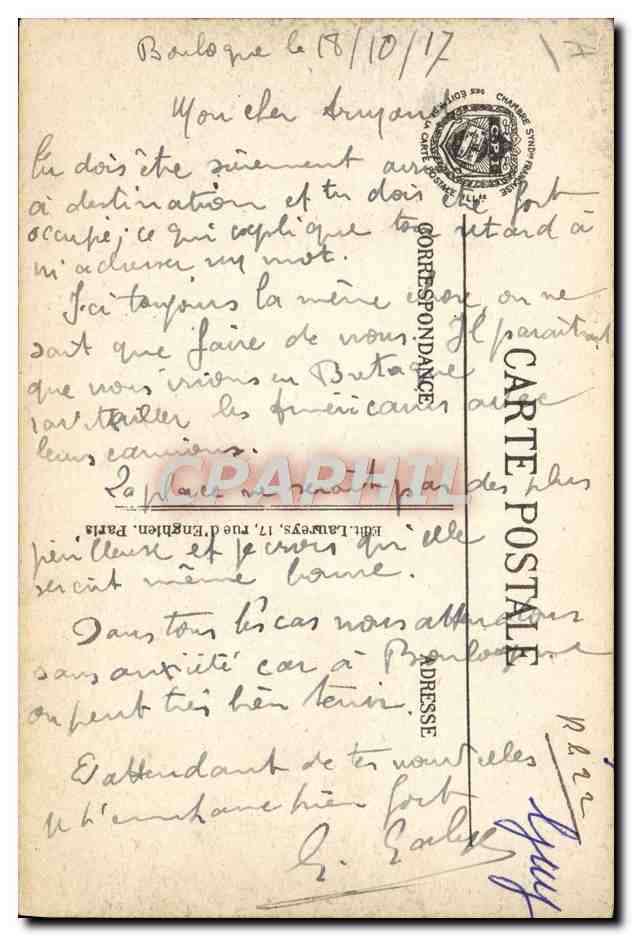 Boulogne le 18/10/17
Mon cher Armand
Tu dois être sûrement
à destination et tu dois être fort
occupé; ce qui explique ton retard à
m'adresser un mot.
Ici toujours la même chose, on ne
sait que faire de nous. Il paraîtrait
que nous irions en Bretagne
ravitailler les Américains avec
leurs camions.
La place ne serait pas des plus
périlleuse et je crois qu'elle
serait même bonne.
Dans tous les cas nous attendons
sans anxiété car à Boulogne
on peut très bien tenir.
En attendant de tes nouvelles
je t'embrasse bien fort
G.
CARTE POSTALE
CORRESPONDANCE
ADRESSE
Edit. Laureys, 17, rue d'Enghien. Paris
CHAMBRE SYNDle FRANÇAISE
DES ÉDITrs DE LA CARTE POSTALE ILLrée
CPI
CPAPHIL